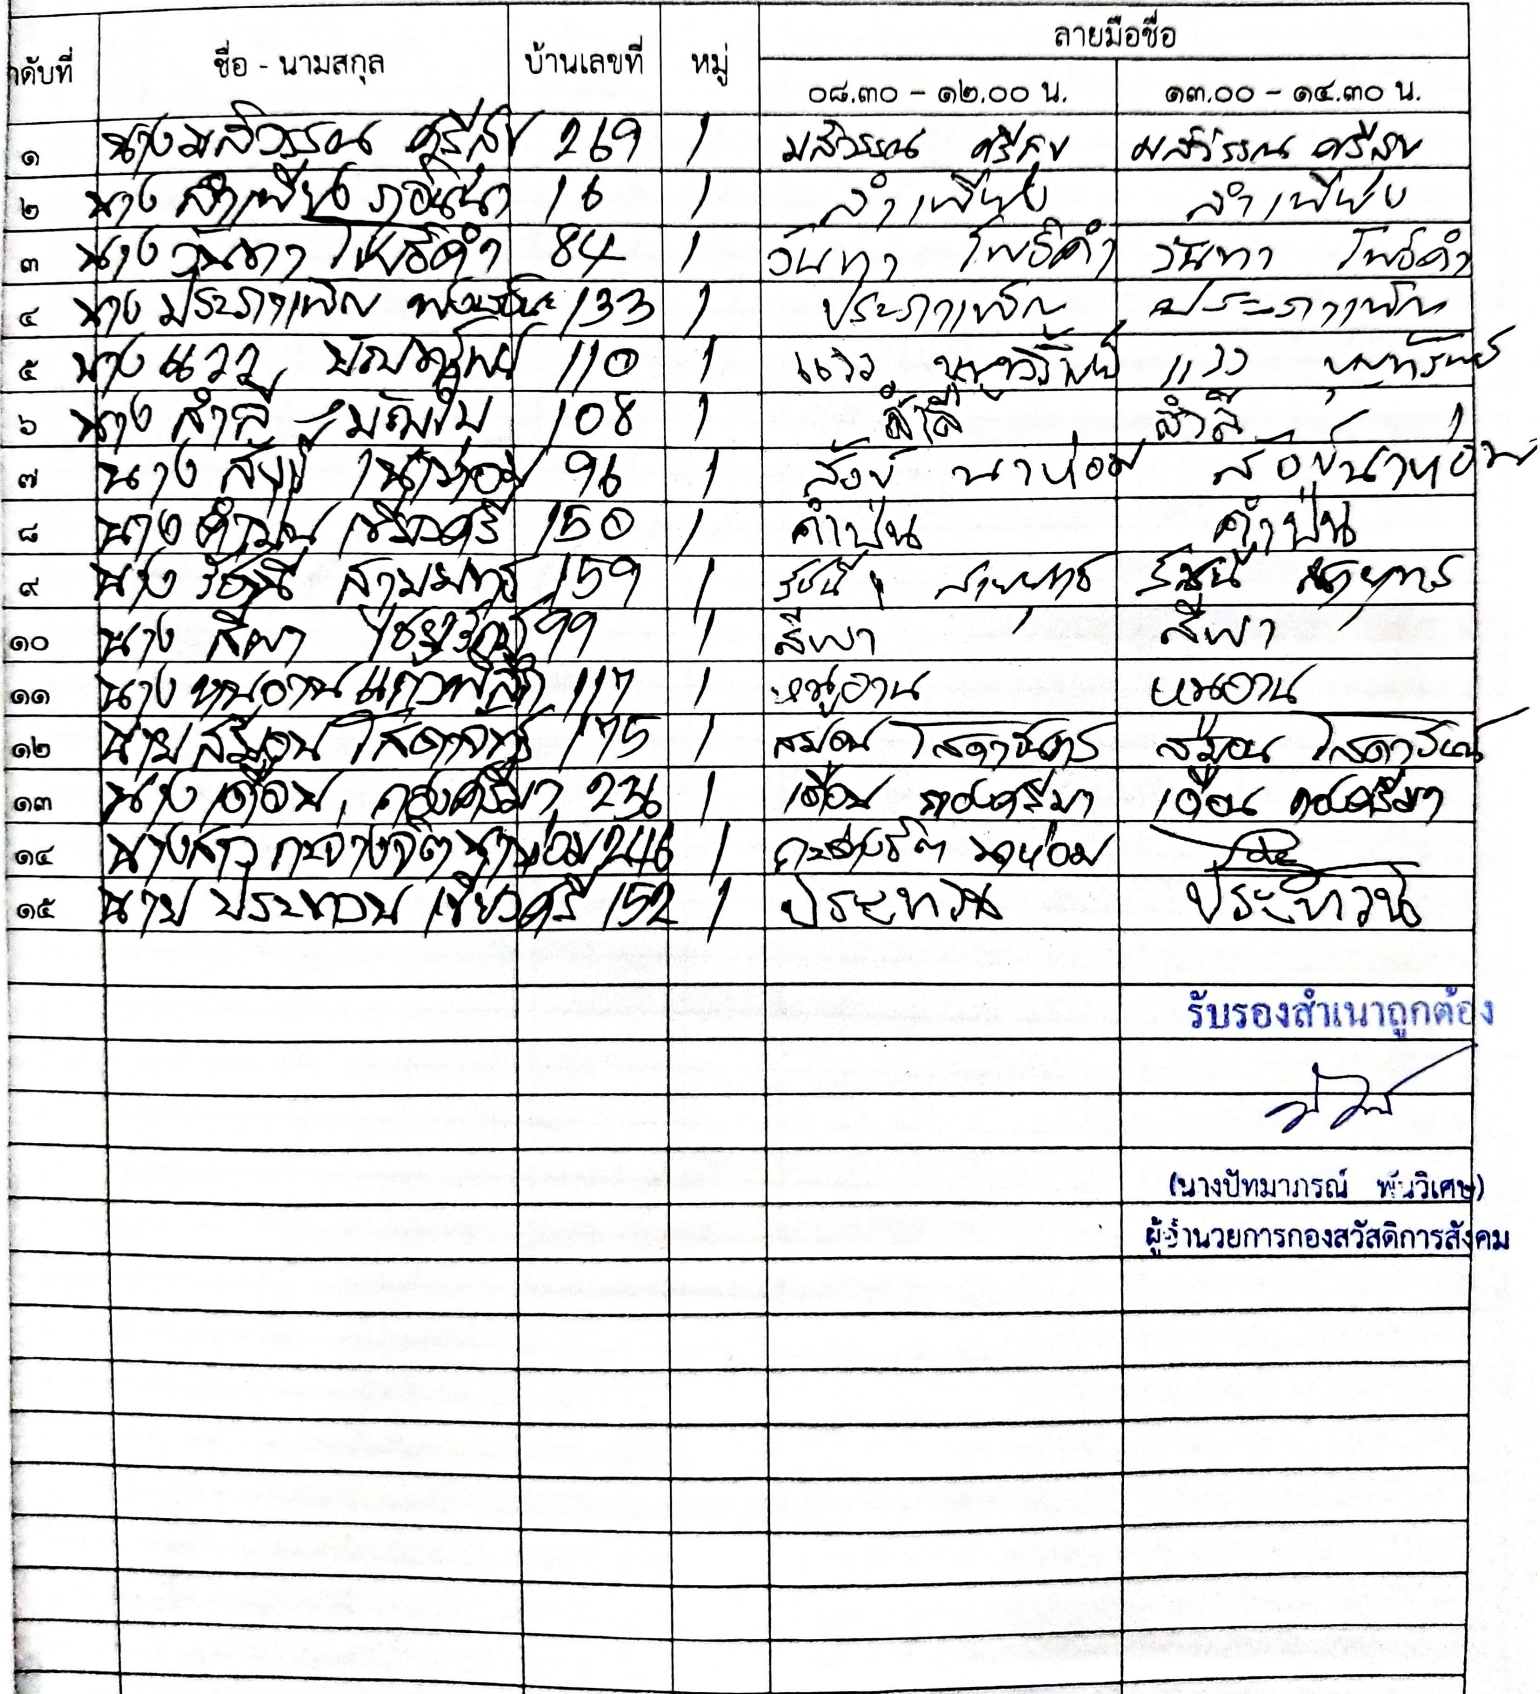 ลายมือชื่อ
ดับที่ ชื่อ - นามสกุล บ้านเลขที่ หมู่
๐๘.๓๐ - ๑๒.๐๐ น. ๑๓.๐๐ - ๑๔.๓๐ น.
๑ นางมลิวรรณ ศรีสุข 269 1 มลิวรรณ ศรีสุข มลิวรรณ ศรีสุข
๒ นาง ลำเพียง 16 1 ลำเพียง ลำเพียง
๓ นาง วันทา โพธิ์คำ 84 1 วันทา โพธิ์คำ วันทา โพธิ์คำ
๔ นาง ประภาเพ็ญ 133 1 ประภาเพ็ญ ประภาเพ็ญ
๕ นาง แวว 110 1 แวว แวว
๖ นาง สำลี 108 1 สำลี สำลี
๗ นาง นาห่อม 96 1 นาห่อม นาห่อม
๘ นาง คำปุ่น เขียวศรี 150 1 คำปุ่น คำปุ่น
๙ นาง รัชนี 159 1 รัชนี รัชนี
๑๐ นาง สีพา 99 1 สีพา สีพา
๑๑ นาง หนูอาน 117 1 หนูอาน หนูอาน
๑๒ นาย โสดาจันทร์ 175 1
๑๓ นาง เตือน กองศรีมา 236 1 เตือน กองศรีมา เตือน กองศรีมา
๑๔ นางสาว กะจ่างจิต นาห่อม 246 1 กะจ่างจิต นาห่อม
๑๕ นาย ประทวน เขียวศรี 152 1 ประทวน ประทวน
รับรองสำเนาถูกต้อง
(นางปัทมาภรณ์ พันวิเศษ)
ผู้อำนวยการกองสวัสดิการสังคม